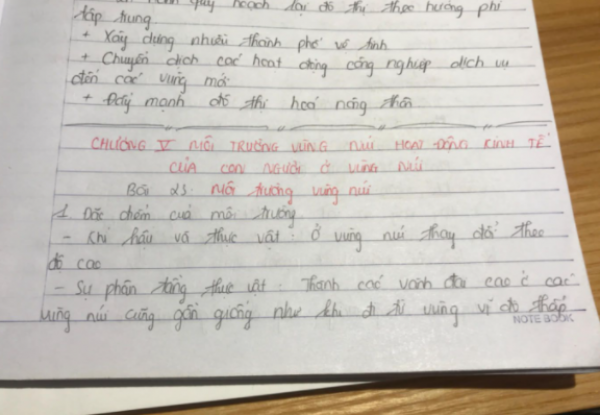 quy hoạch lại đô thị theo hướng phi
tập trung.
+ Xây dựng nhiều thành phố vệ tinh
+ Chuyển dịch các hoạt động công nghiệp dịch vụ
đến các vùng mới
+ Đẩy mạnh đô thị hoá nông thôn
CHƯƠNG V MÔI TRƯỜNG VÙNG NÚI HOẠT ĐỘNG KINH TẾ
CỦA CON NGƯỜI Ở VÙNG NÚI
Bài 23: Môi trường vùng núi
1. Đặc điểm của môi trường
- Khí hậu và thực vật ở vùng núi thay đổi theo
độ cao
- Sự phân tầng thực vật thành các vành đai cao ở các
vùng núi cũng gần giống như khi đi từ vùng vĩ độ thấp
NOTEBOOK